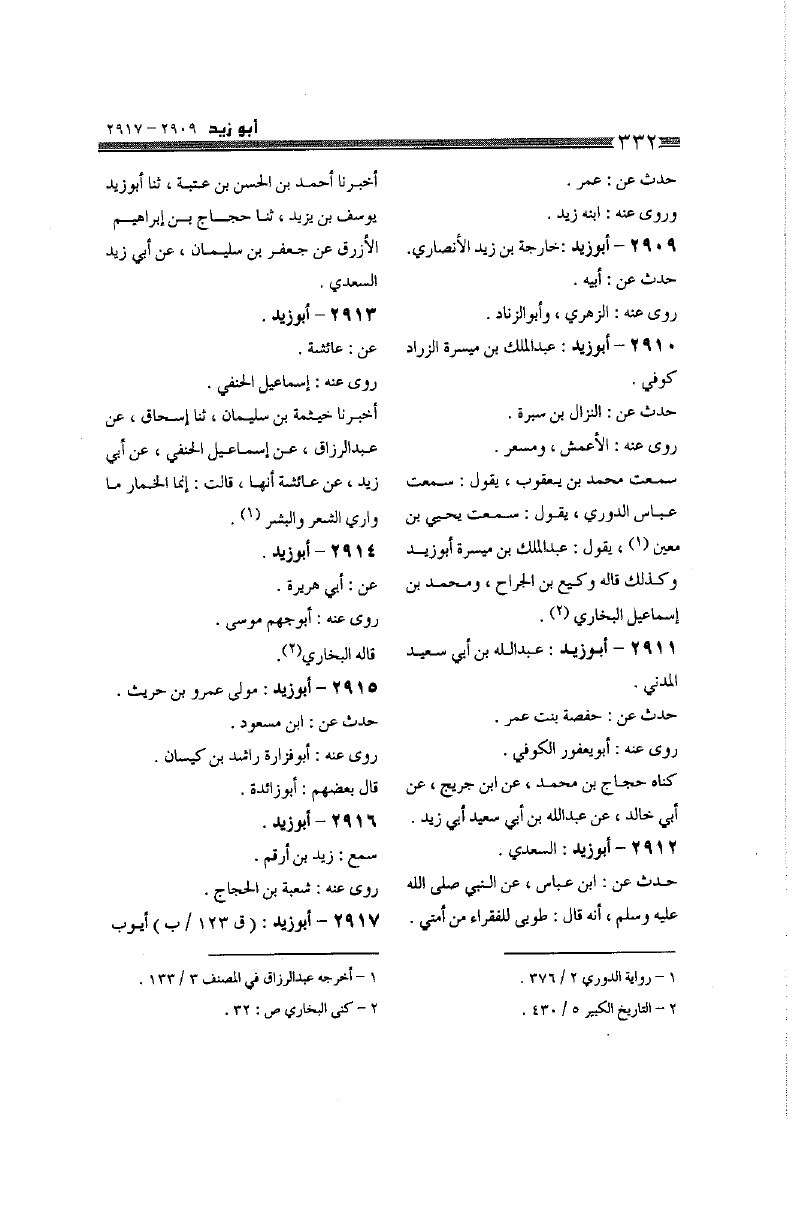 ٣٣٢
أبو زيد ٢٩٠٩ - ٢٩١٧
حدث عن : عمر .
وروى عنه : ابنه زيد .
٢٩٠٩ - أبوزيد : خارجة بن زيد الأنصاري.
حدث عن : أبيه .
روى عنه : الزهري ، وأبوالزناد .
٢٩١٠ - أبوزيد : عبدالملك بن ميسرة الزراد
كوفي .
حدث عن : النزال بن سبرة .
روى عنه : الأعمش ، ومسعر .
سمعت محمد بن يعقوب ، يقول : سمعت
عباس الدوري ، يقول : سمعت يحيى بن
معين (١) ، يقول : عبدالملك بن ميسرة أبوزيد
وكذلك قاله وكيع بن الجراح ، ومحمد بن
إسماعيل البخاري (٢) .
٢٩١١ - أبوزيد : عبدالله بن أبي سعيد
المدني .
حدث عن : حفصة بنت عمر .
روى عنه : أبويعفور الكوفي .
كناه حجاج بن محمد ، عن ابن جريج ، عن
أبي خالد ، عن عبدالله بن أبي سعيد أبي زيد .
٢٩١٢ - أبوزيد : السعدي .
حدث عن : ابن عباس ، عن النبي صلى الله
عليه وسلم ، أنه قال : طوبى للفقراء من أمتي .
١ - رواية الدوري ٢ / ٣٧٦ .
٢ - التاريخ الكبير ٥ / ٤٣٠ .
أخبرنا أحمد بن الحسن بن عتبة ، ثنا أبوزيد
يوسف بن يزيد ، ثنا حجاج بن إبراهيم
الأزرق عن جعفر بن سليمان ، عن أبي زيد
السعدي .
٢٩١٣ - أبوزيد .
عن : عائشة .
روى عنه : إسماعيل الحنفي .
أخبرنا خيثمة بن سليمان ، ثنا إسحاق ، عن
عبدالرزاق ، عن إسماعيل الحنفي ، عن أبي
زيد ، عن عائشة أنها ، قالت : إنما الخمار ما
واري الشعر والبشر (١) .
٢٩١٤ - أبوزيد .
عن : أبي هريرة .
روى عنه : أبوجهم موسى .
قاله البخاري(٢).
٢٩١٥ - أبوزيد : مولى عمرو بن حريث .
حدث عن : ابن مسعود .
روى عنه : أبوفزارة راشد بن كيسان .
قال بعضهم : أبوزائدة .
٢٩١٦ - أبوزيد .
سمع : زيد بن أرقم .
روى عنه : شعبة بن الحجاج .
٢٩١٧ - أبوزيد : ( ق ١٢٣ / ب ) أيوب
١ - أخرجه عبدالرزاق في المصنف ٣ / ١٣٣ .
٢ - كنى البخاري ص : ٣٢ .